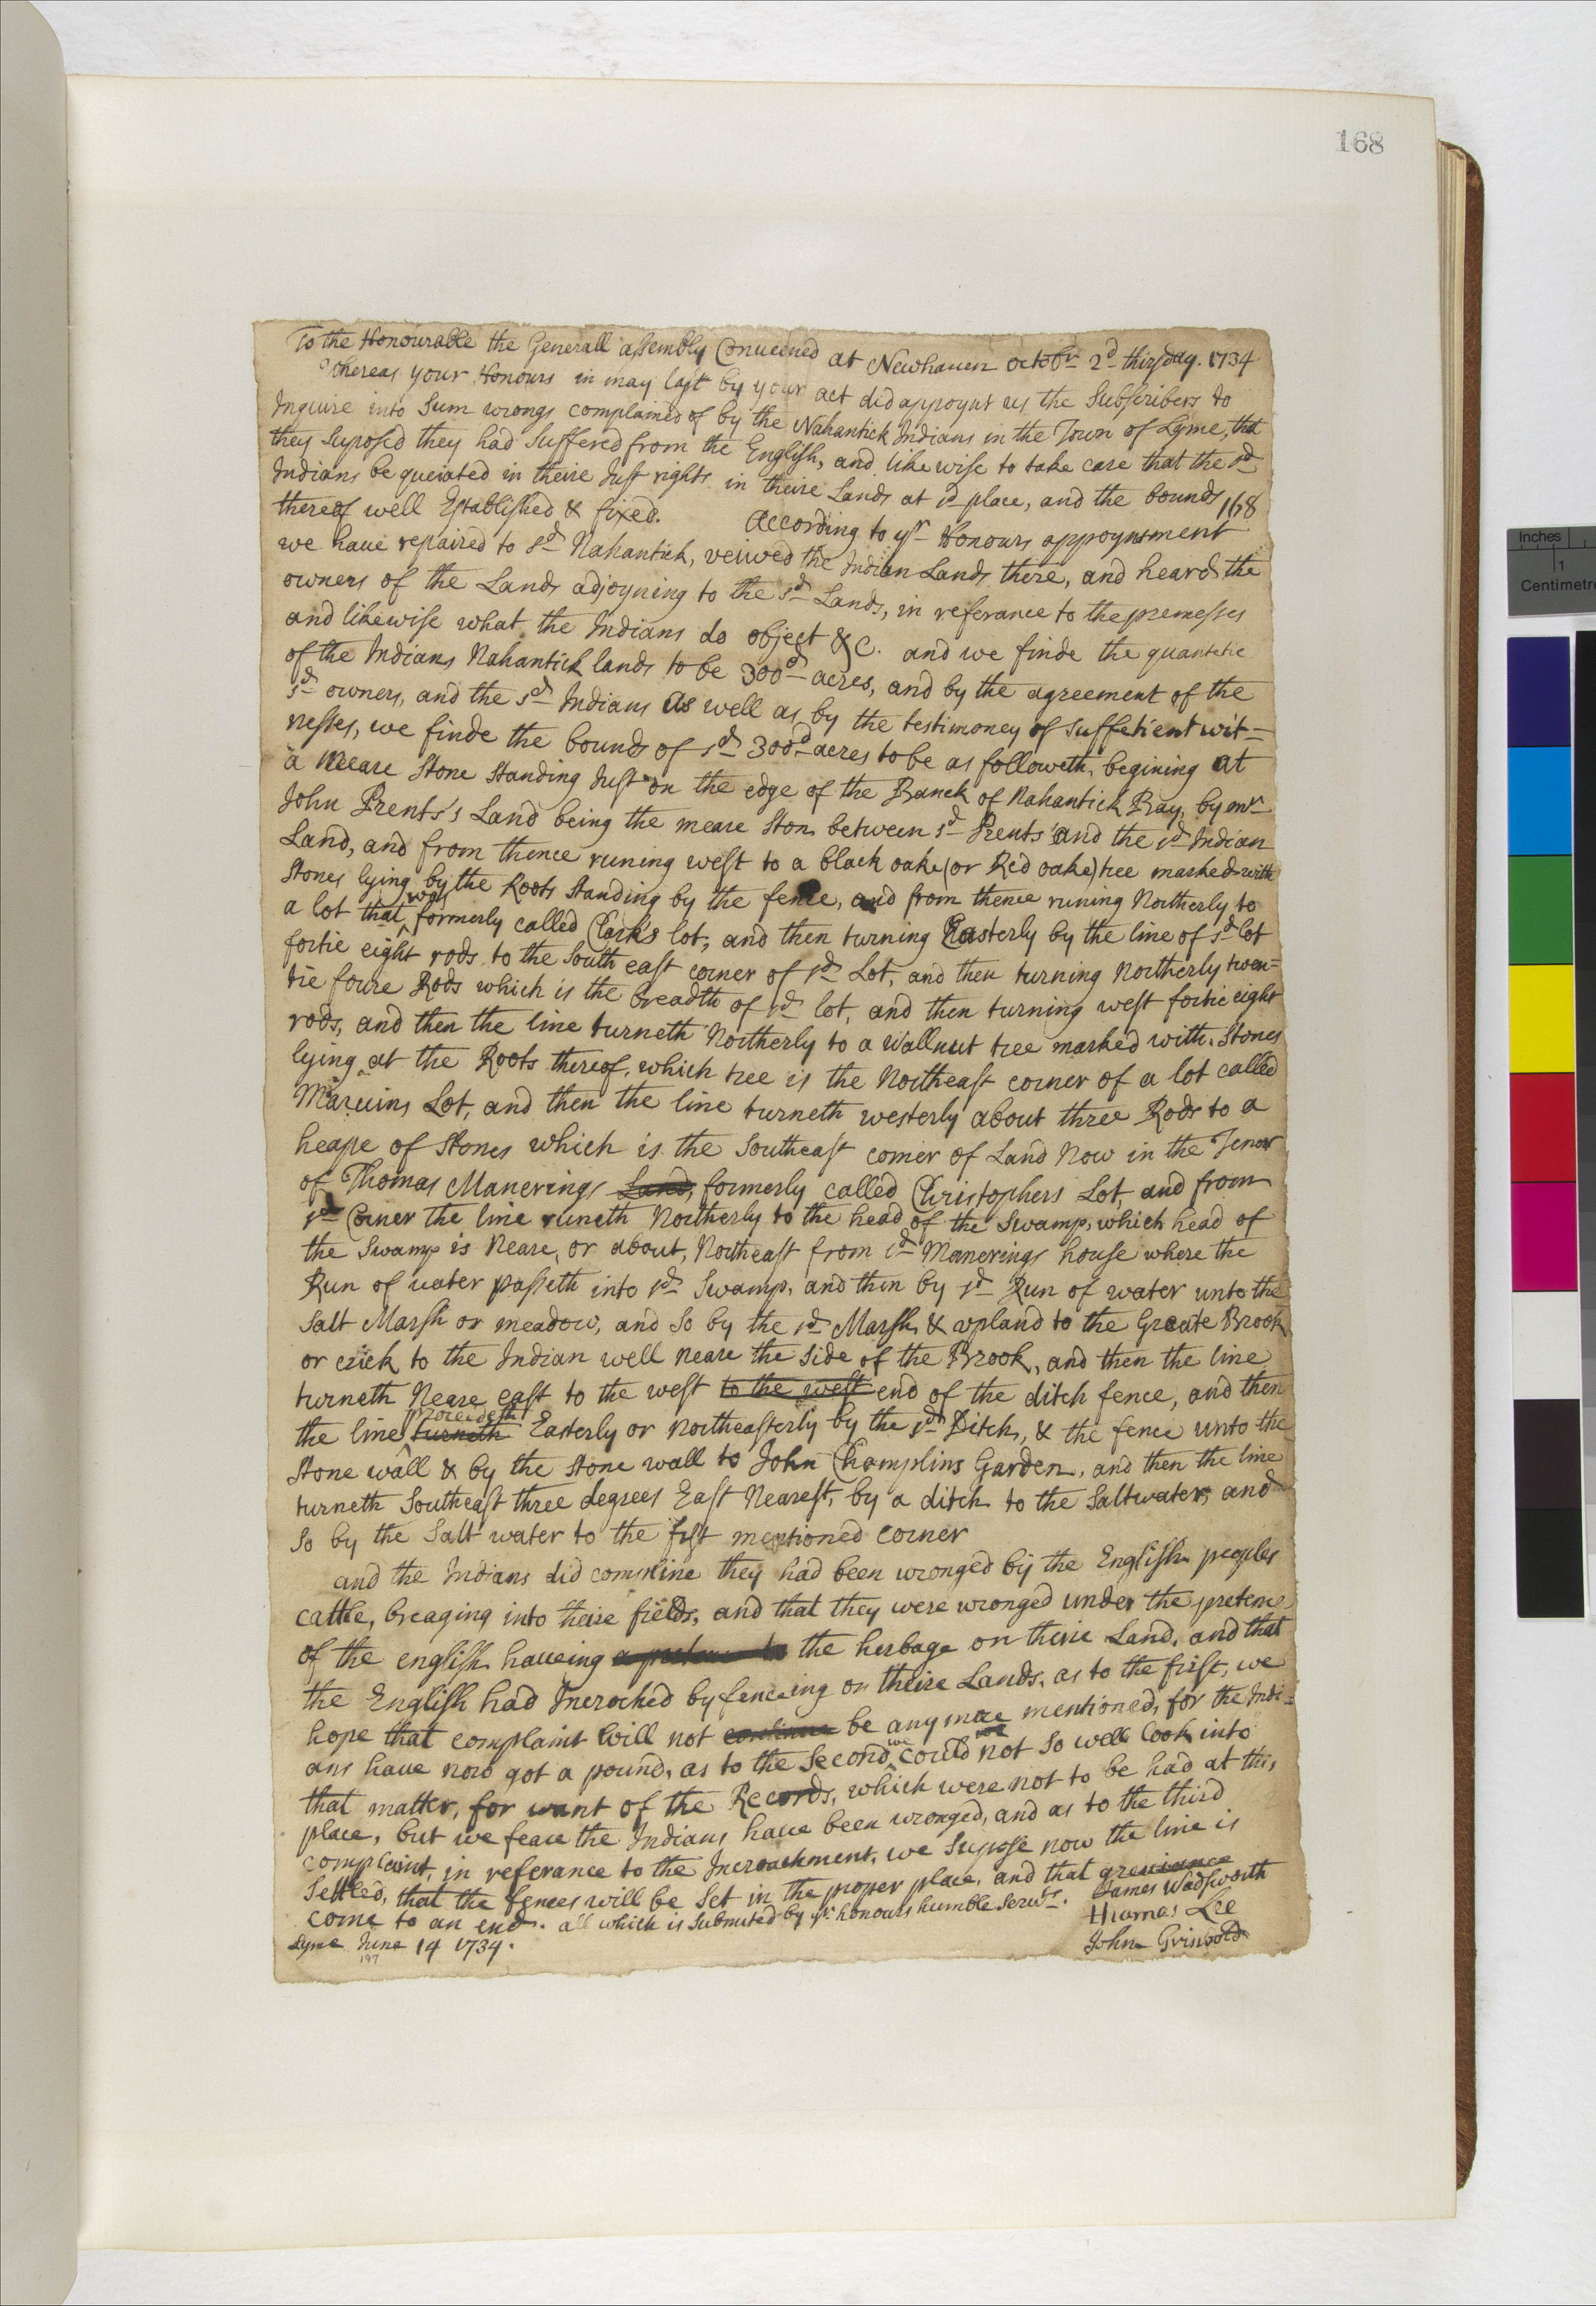 168
To the Honourable the Generall assembly Convened at Newhaven octobr 2d thirsday. 1734
Whereas your Honours in may last by your act did appoynt us the Subscribers to
Inquire into Sum wrongs complained of by the Nahantick Indians in the Town of Lyme, that
they Suposed they had Suffered from the English, and like wise to take care that the sd
Indians be queiated in theire Just rights in theire Lands at sd place, and the bounds
thereof well Established & fixed. According to yr Honours appoyntment
168
we haue repaired to sd Nahantick, veiwed the Indian Lands there, and heard the
owners of the Lands adjoyning to the sd Lands, in referance to the premesses
and likewise what the Indians do object &c. and we finde the quantetie
of the Indians Nahantick lands to be 300d acres, and by the agreement of the
sd owners, and the sd Indians as well as by the testimoney of suffetient wit=
nesses, we finde the bounds of sd 300d acres to be as followeth, begining at
a Meare Stone Standing Just on the edge of the Banck of Nahantick Bay, by mr
John Prents's Land being the meare Ston between sd Prents and the sd Indian
Land, and from thence runing west to a black oake (or Red oake) tree marked with
Stones lying by the Roots Standing by the fence, and from thence runing Northerly to
a lot that was formerly called Clark's lot, and then turning Easterly by the line of sd lot
fortie eight rods to the South east corner of sd Lot, and then turning Northerly twen=
tie foure Rods which is the breadth of sd lot, and then turning west fortie eight
rods, and then the line turneth Northerly to a Wallnut tree marked with Stones
lying at the Roots thereof, which tree is the Northeast corner of a lot called
Maruins Lot, and then the line turneth westerly about three Rods to a
heape of Stones which is the Southeast corner of Land Now in the Tenor
of Thomas Manerings Land, formerly called Christophers Lot, and from
sd Corner the line runeth Northerly to the head of the Swamp, which head of
the Swamp is Neare, or about, Northeast from sd Manerings house where the
Run of water passeth into sd Swamp, and then by sd Run of water unto the
Salt Marsh or meadow, and So by the sd Marsh & upland to the Greate Brook
or crick to the Indian well neare the Side of the Brook, and then the line
turneth Neare east to the west to the west end of the ditch fence, and then
the line turneth proceedeth Easterly or Northeasterly by the sd Ditch, & the fence unto the
Stone wall & by the Stone wall to John Champlins Garden, and then the line
turneth Southeast three degrees East Nearest, by a ditch to the Saltwater, and
So by the Salt water to the fist mentioned corner
and the Indians did complaine they had been wronged by the English peoples
cattle, breaging into theire fields, and that they were wronged under the pretence
of the english haueing a pretence to the herbage on theire Land, and that
the English had Incroched by fenceing on theire Lands, as to the first, we
hope that complaint will not continue be any more mentioned, for the Indi=
ans haue now got a pound, as to the Second, we could not So well look into
that matter, for want of the Records, which were not to be had at this
place, but we feare the Indians haue been wronged, and as to the third
complaint, in referance to the Incroachment, we Supose now the line is
Settled, that the fences will be Set in the proper place, and that greuiance
come to an end. all which is Submited by yr honours humble Seruts.
James Wadsworth
Thomas Lee
John Griswold
Lyme June 14 1734.